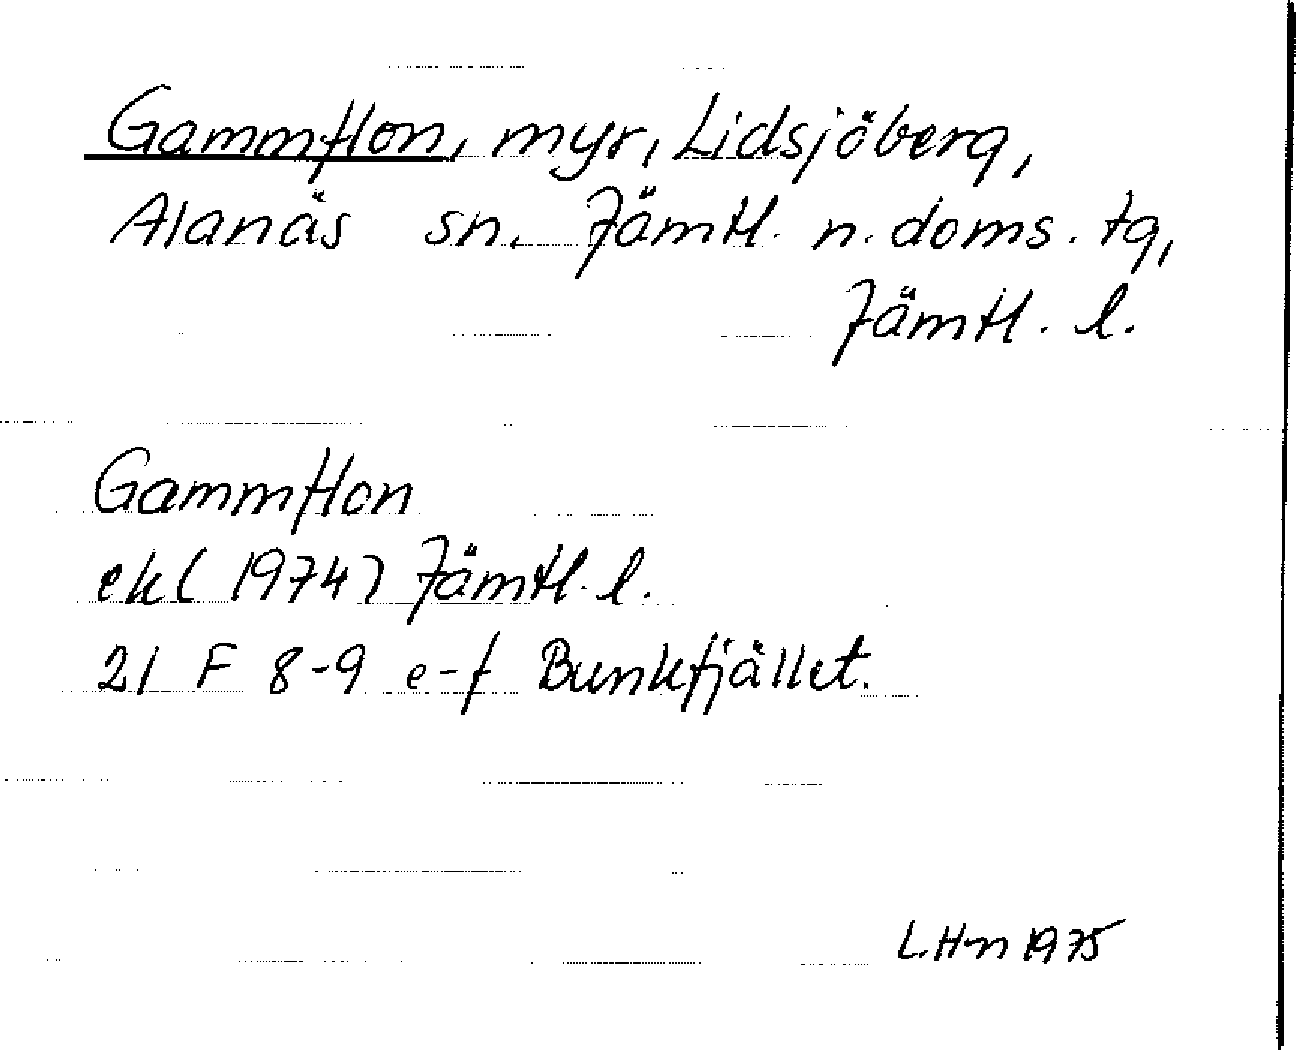 Gammflon, myr, Lidsjöberg,
Alanäs sn. Jämtl. n. doms. tg,
Jämtl. l.
Gammflon
ek ( 1974 ) Jämtl. l.
21 F 8-9 e-f Bunkfjället.
L.Hm 1975